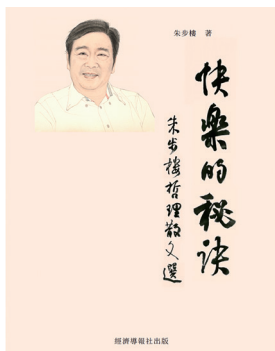 朱步楼 著
快樂的秘诀
朱步楼哲理散文選
經濟導報社出版